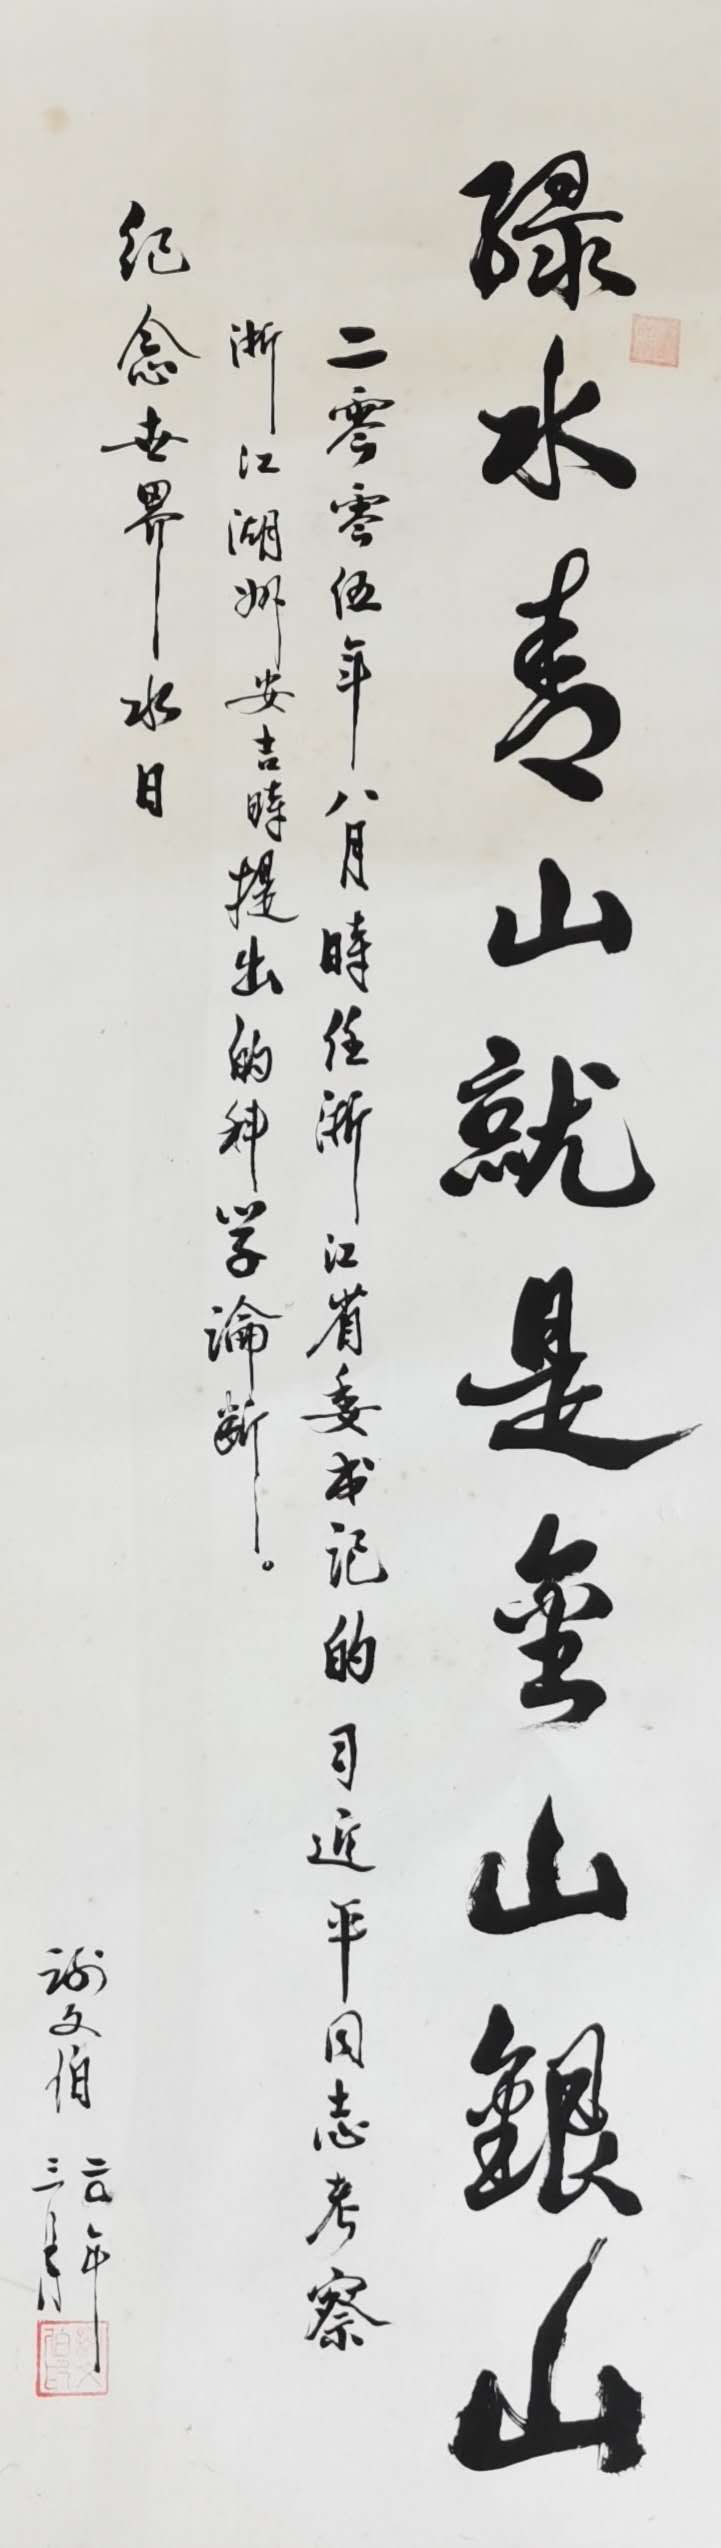 绿水青山就是金山銀山
二零零伍年八月時任浙江省委书记的习近平同志考察
浙江湖州安吉時提出的科学論断。
纪念世界水日
謝文伯
三月